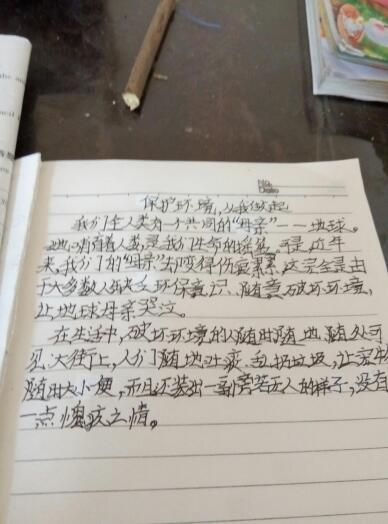 No.
Date
保护环境,从我做起
我们全人类有一个共同的“母亲”——地球。
她哺育着人类,是我们生命的摇篮。可是近年
来,我们的“母亲”却变得伤痕累累,这完全是由
于大多数人缺乏环保意识、随意破坏环境,
让地球母亲哭泣。
在生活中,破坏环境的人随时随地、随处可
见。大街上,人们随地吐痰、乱扔垃圾,让
随地大小便,而且还装出一副旁若无人的样子,没有
一点愧疚之情。